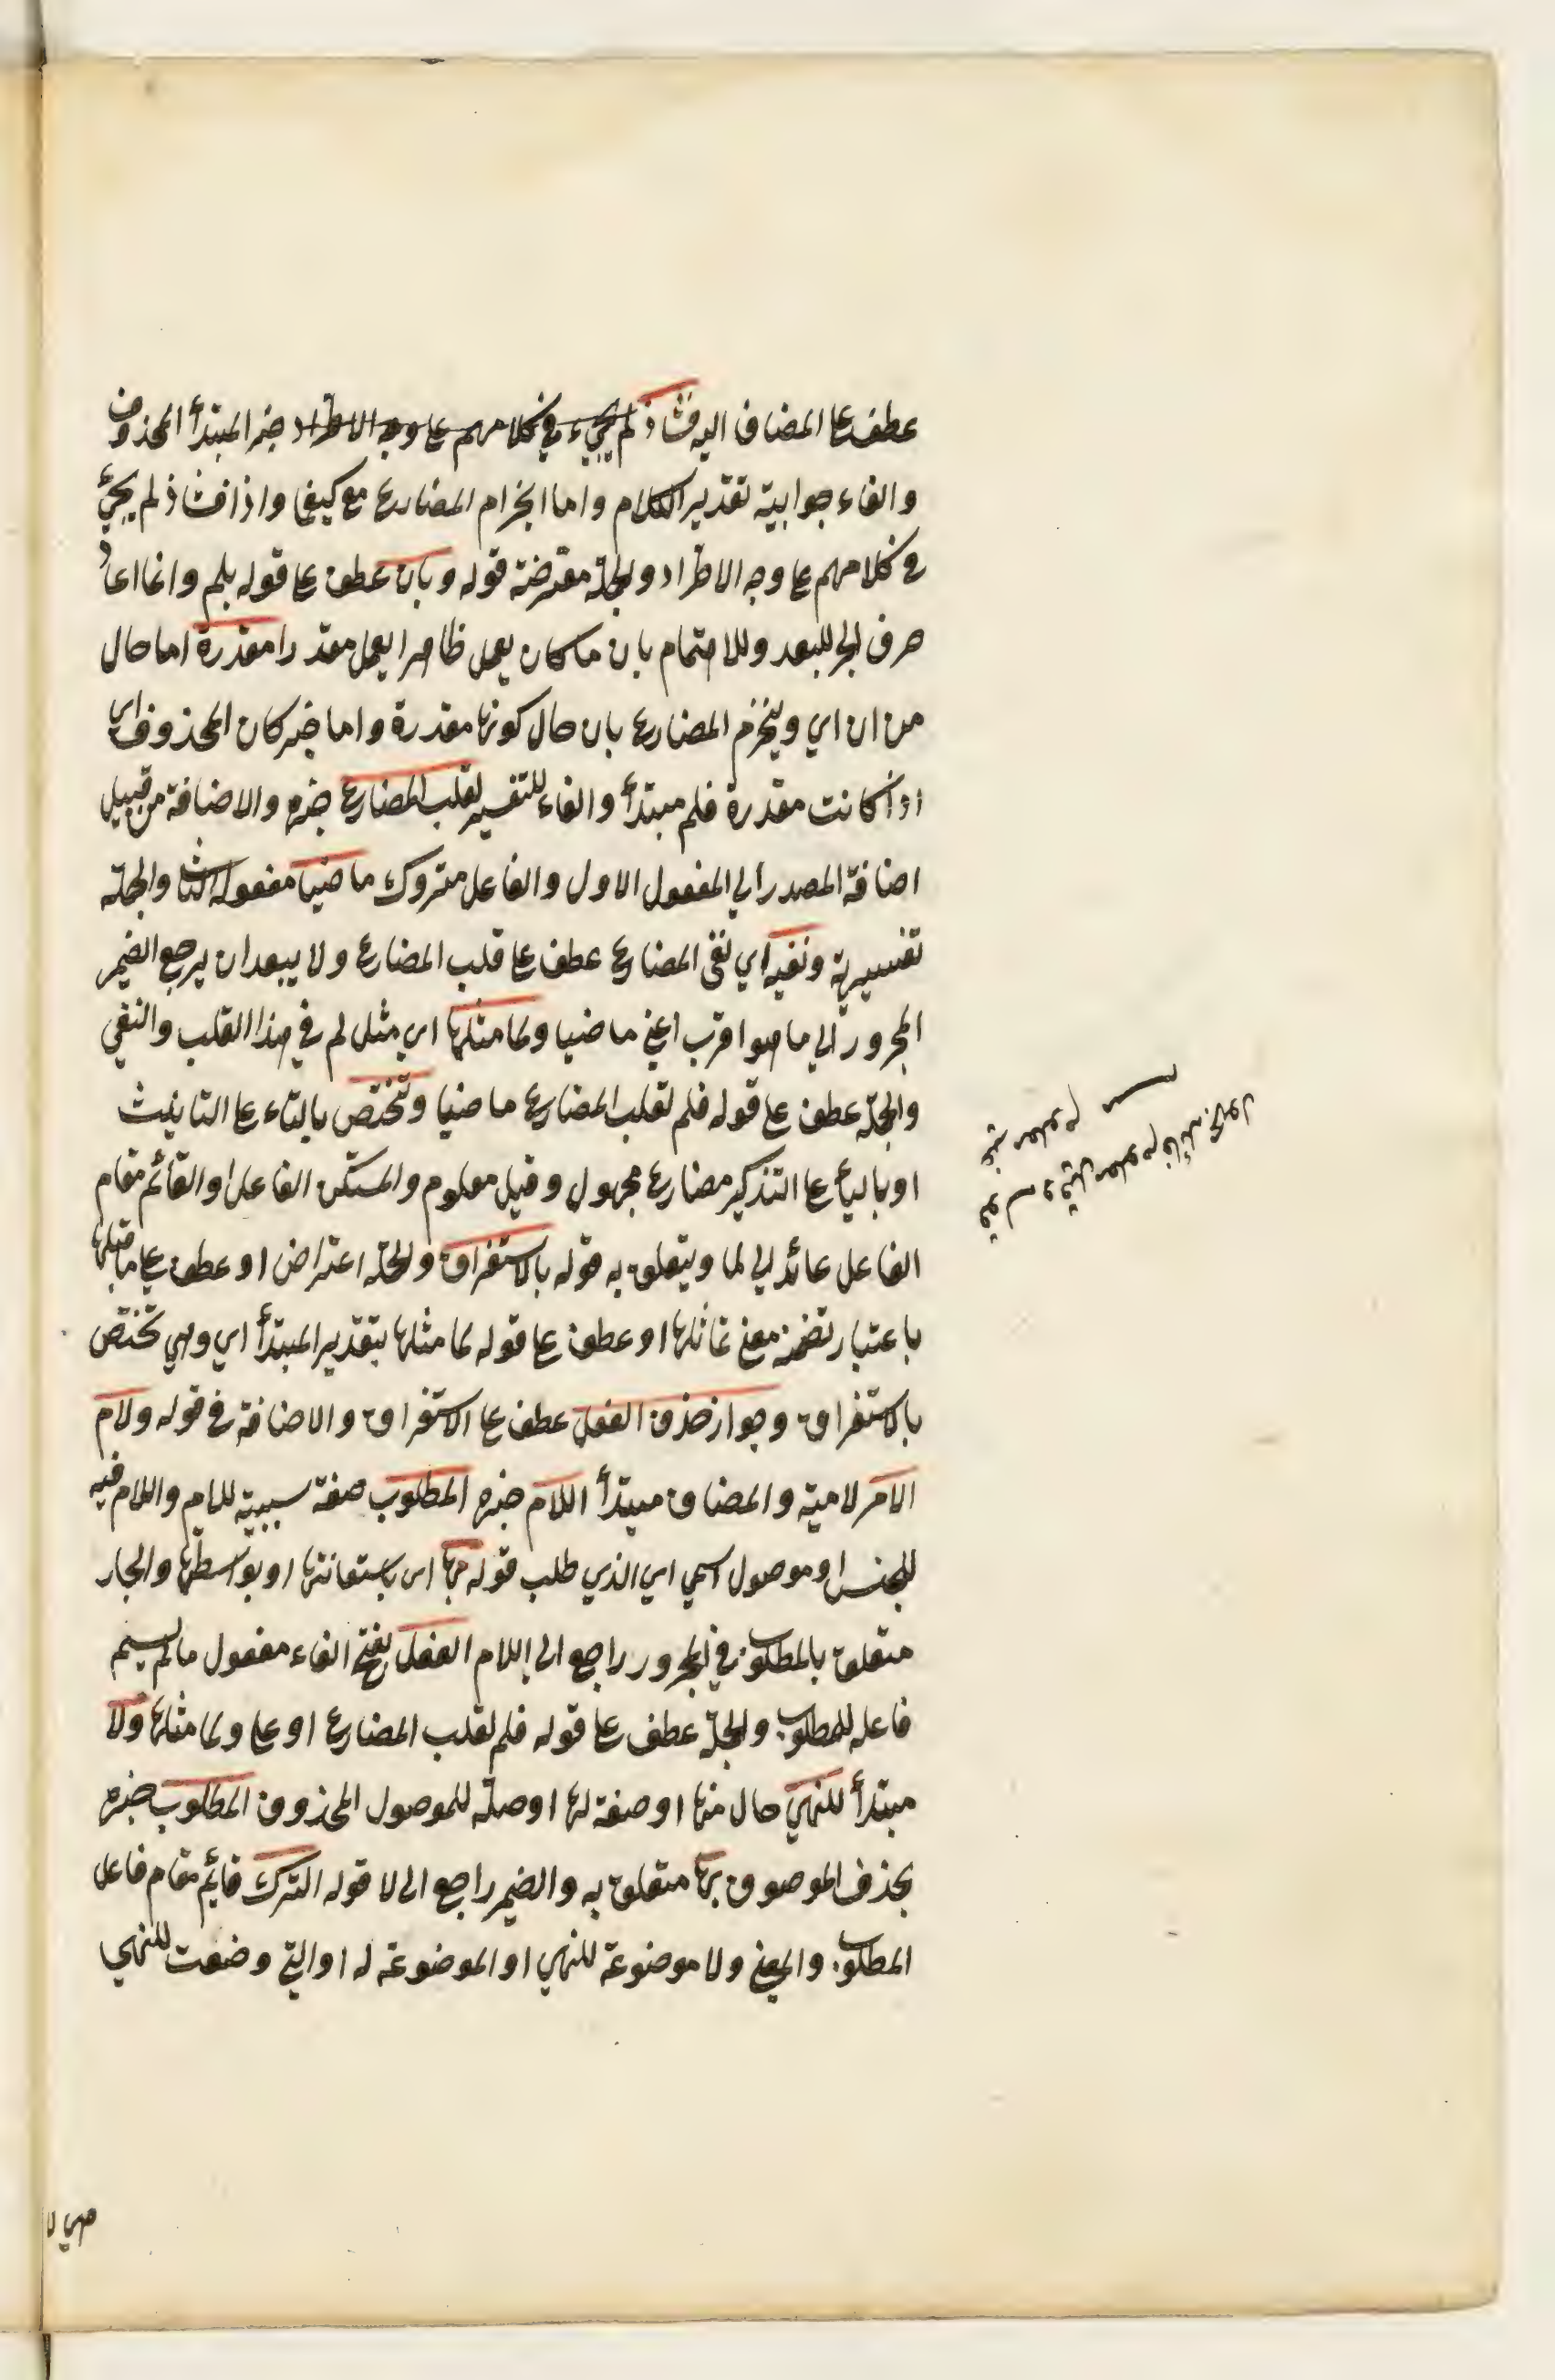 عطف على المضاف اليه فشاذ لم يجيء في كلامهم على وجه الاطراد خبر المبتدأ المحذوف
والفاء جوابية تقدير الكلام واما انجزام المضارع مع كيفما واذا فشاذ لم يجيء
في كلامهم على وجه الاطراد والجملة معترضة قوله وبان عطف على قوله بلم وانما اعاد
حرف الجر للبعد وللاهتمام بان ما كان يعمل ظاهرا يعمل مقدرا مقدرة اما حال
من ان اي وينجزم المضارع بان حال كونها مقدرة واما خبر كان المحذوف اي
اذا كانت مقدرة فلم مبتدأ والفاء للتفسير لقلب المضارع خبره والاضافة من قبيل
اضافة المصدر الى المفعول الاول والفاعل متروك ماضيا مفعوله الثاني والجملة
تفسيرية ونفيه اي نفي المضارع عطف على قلب المضارع ولا يبعد ان يرجع الضمير
المجرور الى ما هو اقرب اعني ماضيا ولما مثلها اي مثل لم في هذا القلب والنفي
والجملة عطف على قوله فلم لقلب المضارع ماضيا وتختص بالتاء على التانيث
او بالياء على التذكير مضارع مجهول وقيل معلوم والمستكن الفاعل او القائم مقام
الفاعل عائد الى لما ويتعلق به قوله بالاستغراق والجملة اعتراض او عطف على ما قبلها
باعتبار تضمنه معنى تماثلها او عطف على قوله لما مثلها بتقدير المبتدأ اي وهي تختص
بالاستغراق وجواز حذف الفعل عطف على الاستغراق والاضافة في قوله ولام
الامر لامية والمضاف مبتدأ اللام خبره المطلوب صفة سببية للام واللام فيه
للجنس او موصول اسمي اي الذي طلب قوله بها اي باستعانتها او بتوسطها والجار
متعلق بالمطلوب في المجرور راجع الى اللام الفعل بفتح الفاء مفعول ما لم يسم
فاعله للمطلوب والجملة عطف على قوله فلم لقلب المضارع او على ولما مثلها ولا
مبتدأ للنهي حال منها او صفة لها او صلة للموصول المحذوف المطلوب خبره
بحذف الموصوف بها متعلق به والضمير راجع الى لا قوله الترك قائم مقام فاعل
المطلوب والمعنى ولا موضوعة للنهي او الموضوعة له او التي وضعت للنهي
قوله وقيل معلوم قائله مجهول
غير معلوم
هي لا